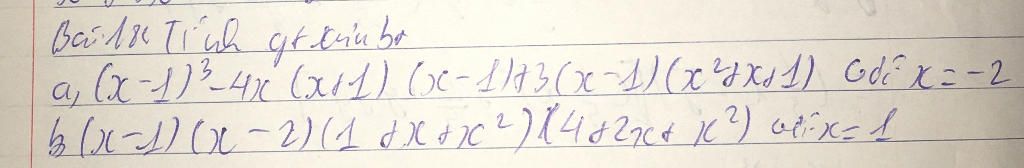 Bài 18: Tính gt của bt
a, (x-1)³-4x(x+1)(x-1)+3(x-1)(x²+x+1) với x=-2
b (x-1)(x-2)(1+x+x²)(4+2x+x²) với x=1